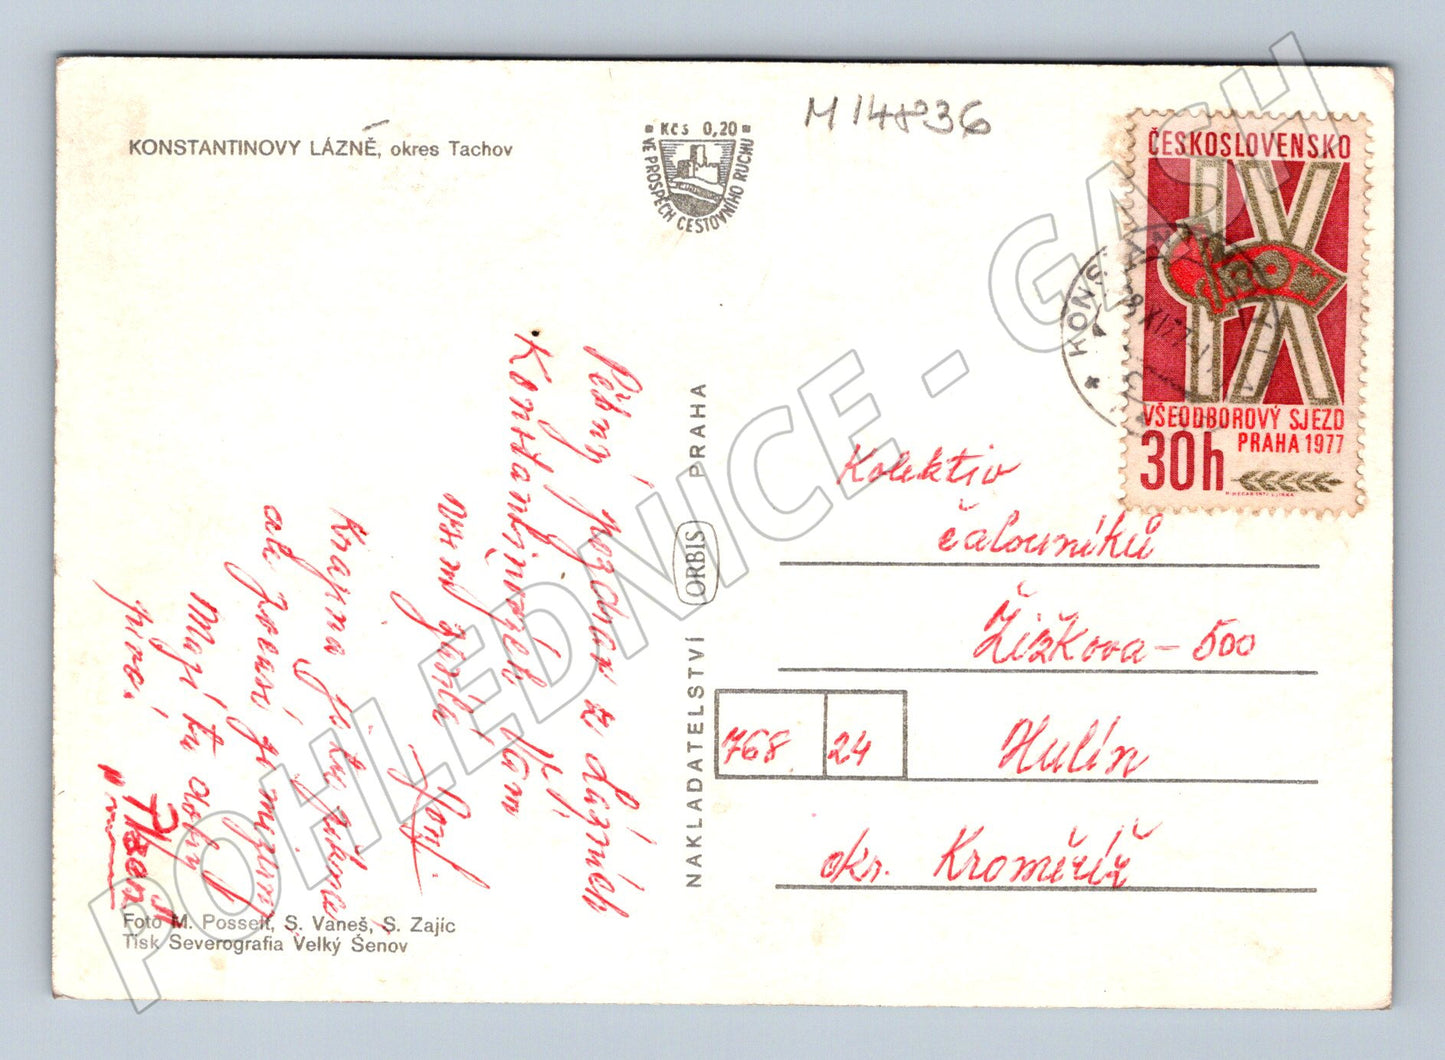 KONSTANTINOVY LÁZNĚ, okres Tachov
Kčs 0,20
VE PROSPĚCH CESTOVNÍHO RUCHU
M 148936
ČESKOSLOVENSKO
IX
VŠEODBOROVÝ SJEZD
PRAHA 1977
30h
KONSTANTINOVY
Pěkný pozdrav z lázních
Konstantinových Vám
Krajina je tu pěkná
ale
Mají tu dobrý
pivo.
Plzeň
NAKLADATELSTVÍ ORBIS PRAHA
Kolektiv
čalouníků
Žižkova - 500
768 24 Hulín
okr. Kroměříž
Foto M. Posselt, S. Vaneš, S. Zajíc
Tisk Severografia Velký Šenov
POHLEDNICE - GASH